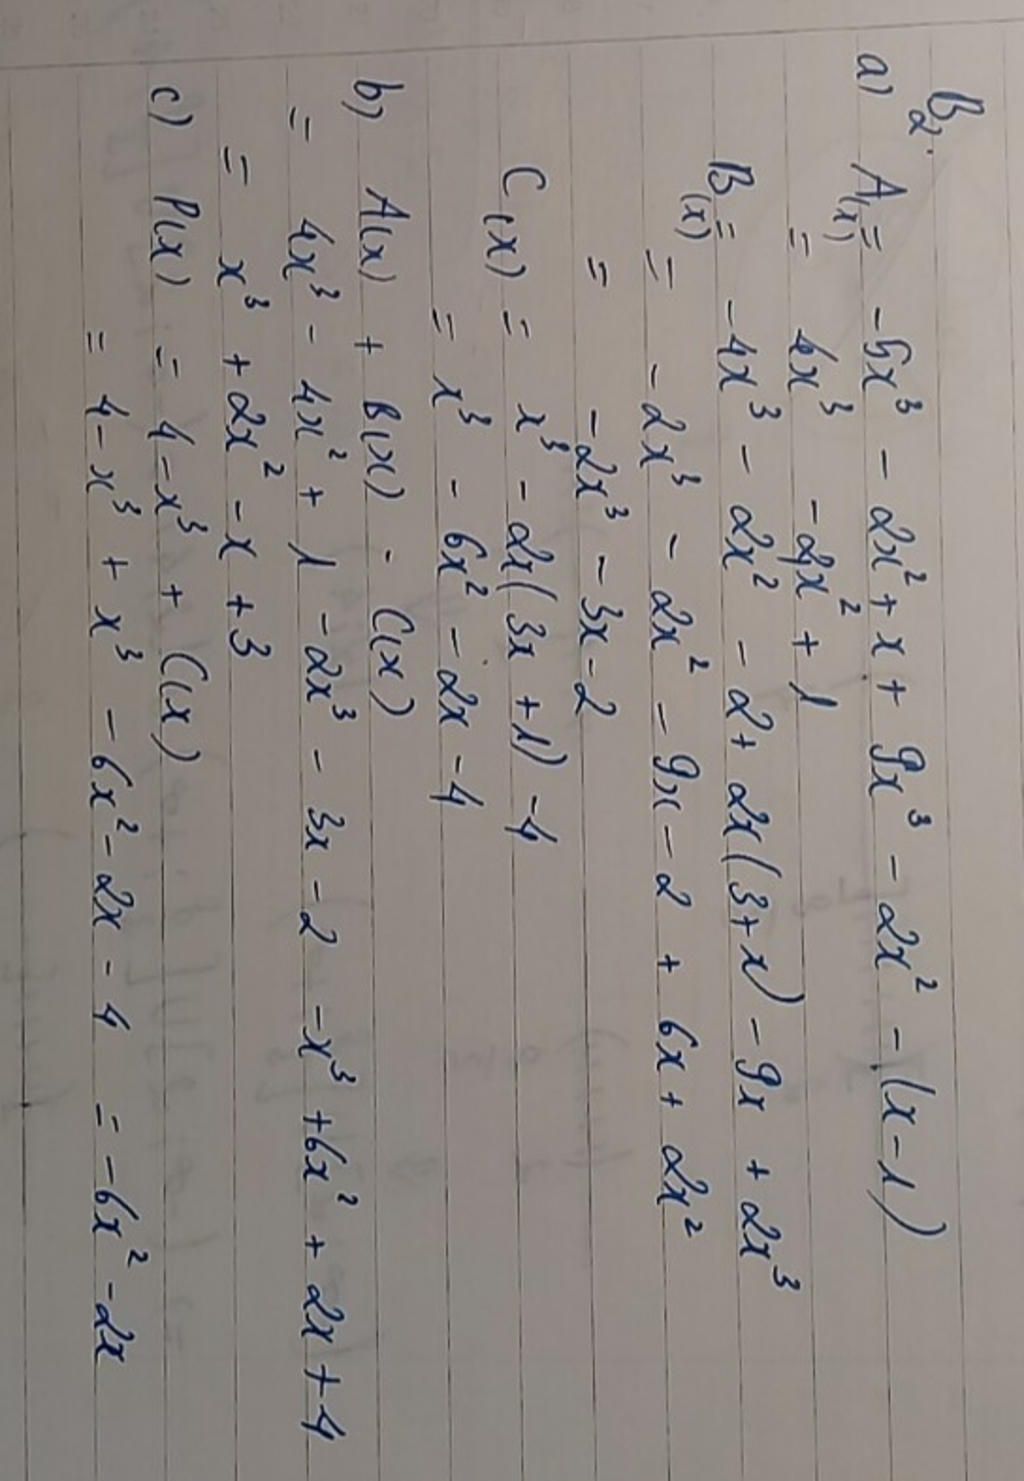 B2.
a) A(x) = -5x³ - 2x² + x + 9x³ - 2x² - (x-1)
= 4x³ - 2x² + 1
B(x) = -4x³ - 2x² - 2 + 2x(3+x) - 9x + 2x³
= -2x³ - 2x² - 9x - 2 + 6x + 2x²
= -2x³ - 3x - 2
C(x) = x³ - 2x(3x+1) - 4
= x³ - 6x² - 2x - 4
b) A(x) + B(x) - C(x)
= 4x³ - 4x² + 1 - 2x³ - 3x - 2 - x³ + 6x² + 2x + 4
= x³ + 2x² - x + 3
c) P(x) = 4 - x³ + C(x)
= 4 - x³ + x³ - 6x² - 2x - 4 = -6x² - 2x